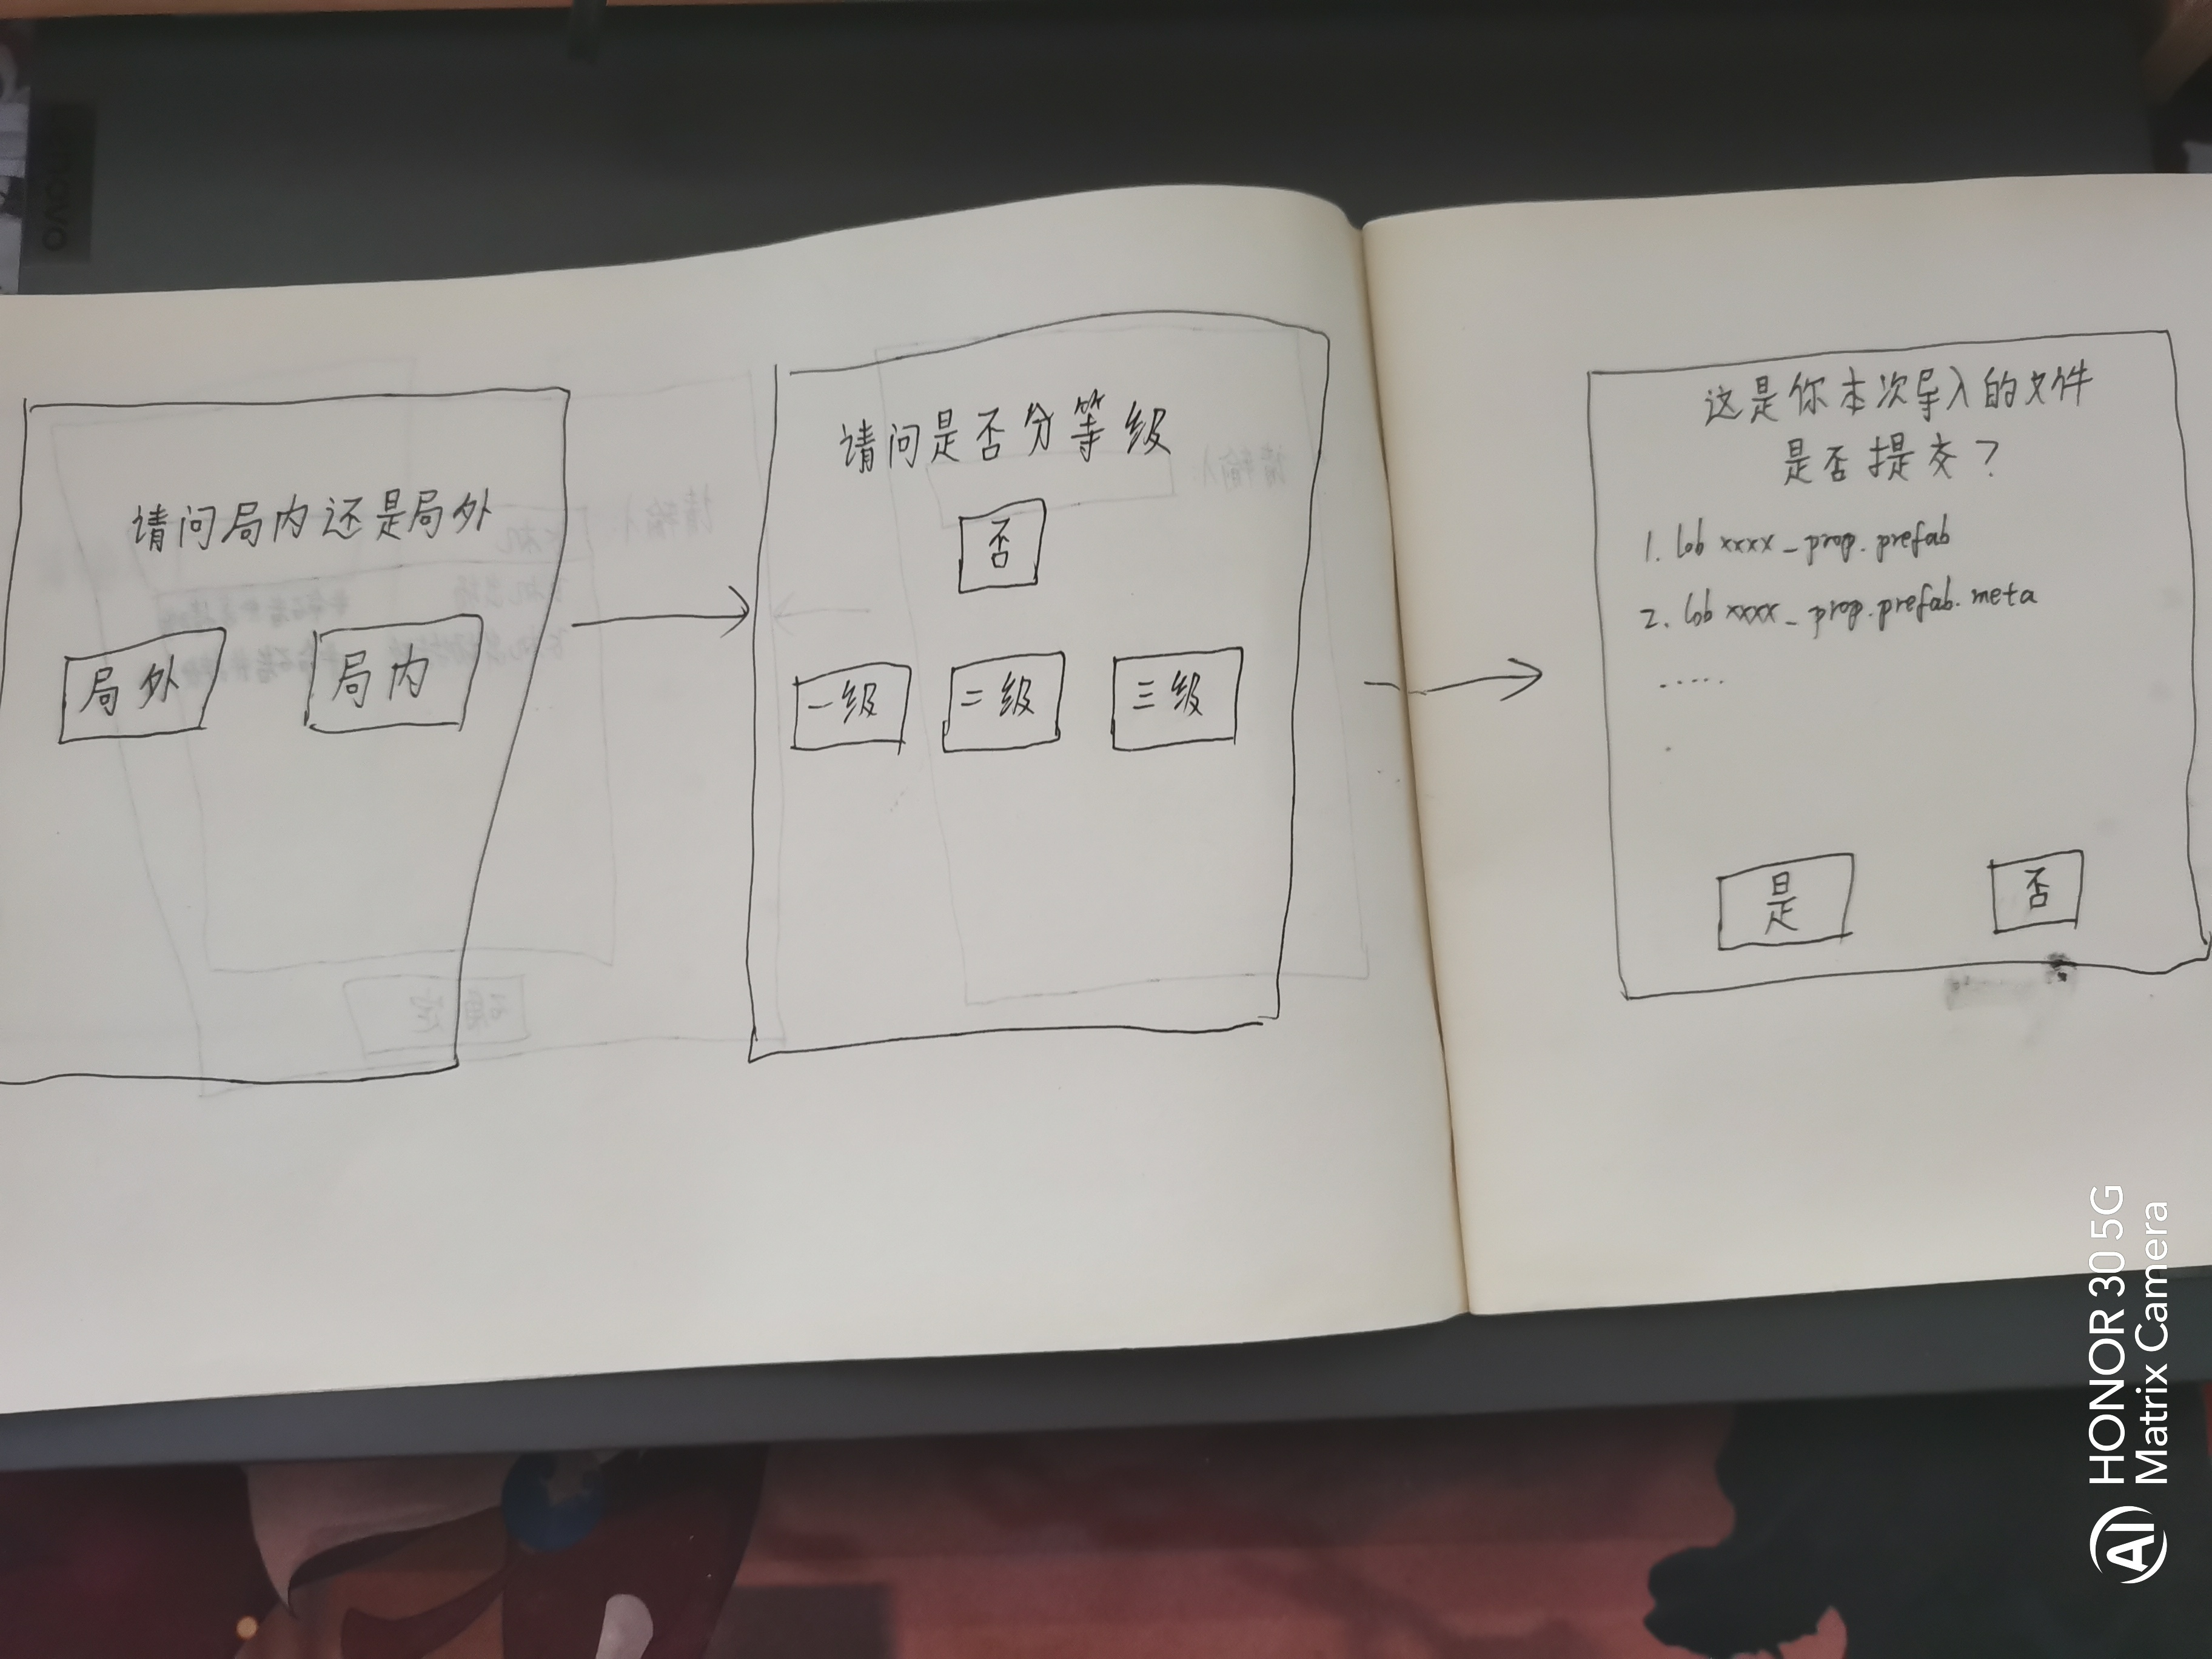 请问局内还是局外
局外
局内
请问是否分等级
否
一级
二级
三级
这是你本次导入的文件
是否提交？
1. lob xxxx_prop.prefab
2. lob xxxx_prop.prefab.meta
......
是
否
HONOR 30 5G
Matrix Camera
AI